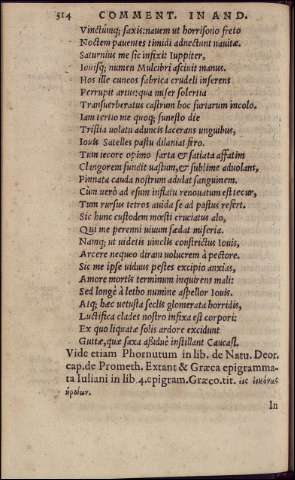 514 COMMENT. IN AND.
Vinctúmq; saxis: nauem ut horrisono freto
Noctem pauentes timidi adnectunt nauitæ.
Saturnius me sic infixit Iuppiter,
Iouisq; numen Mulcibri asciuit manus.
Hos ille cuneos fabrica crudeli inserens
Perrupit artus: qua miser solertia
Transuerberatus castrum hoc furiarum incolo.
Iam tertio me quoq; funesto die
Tristia uolatu aduncis lacerans unguibus,
Iouis Satelles pastu dilaniat fero.
Tum iecore opimo farta & satiata affatim
Clangorem fundit uastum, & sublime aduolans,
Pinnata cauda nostrum adulat sanguinem.
Cùm uerò adesum inflatu renouatum est iecur,
Tum rursus tetros auida se ad pastus refert.
Sic hunc custodem mœsti cruciatus alo,
Qui me perenni uiuum fœdat miseria.
Namq; ut uidetis uinclis constrictus Iouis,
Arcere nequeo diram uolucrem à pectore.
Sic me ipse uiduus pestes excipio anxias,
Amore mortis terminum inquirens mali:
Sed longè à letho numine aspellor Iouis.
Atq; hæc uetusta seclis glomerata horridis,
Luctifica clades nostro infixa est corpori:
Ex quo liquatæ solis ardore excidunt
Guttæ, quæ saxa aßiduè instillant Caucasi.
Vide etiam Phornutum in lib. de Natu. Deor.
cap. de Prometh. Extant & Græca epigramma-
ta Iuliani in lib. 4. epigram. Græco. tit. εἰς εἰκόνας
ἡρώων.
In